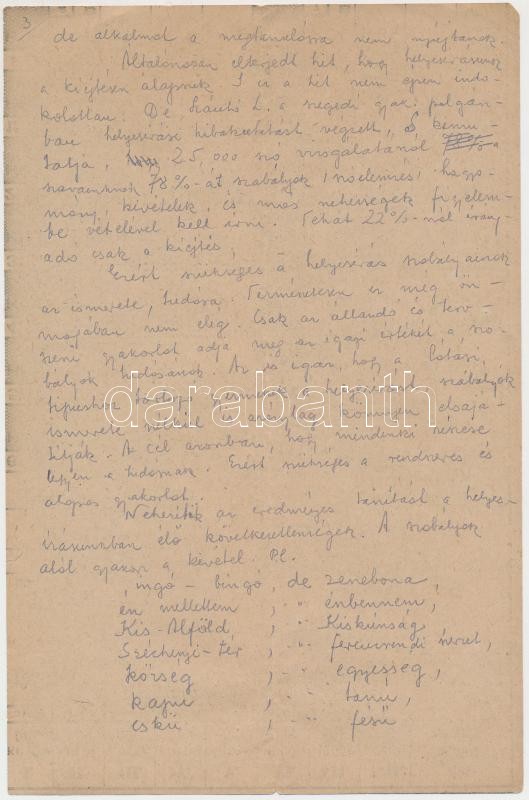 3
de alkalmat a megtanulásra nem nyújtanak.
Általánosan elterjedt hit, hogy helyesírásunk
a kiejtésen alapszik. S ez a hit nem egészen indo-
kolatlan. De L. a szegedi gyak. polgári-
ban helyesírási hibakutatást végzett, s kimu-
tatja, 25,000 szó vizsgálatánál a
szavainknak 78%-át szabályok, szóelemzés, hagyo-
mány, kivételek és más nehézségek figyelem-
be vételével kell írni. Tehát 22%-nál irány-
adó csak a kiejtés.
Ezért szükséges a helyesírás szabályainak
az ismerete, tudása. Természetesen ez még ön-
magában nem elég. Csak az állandó és terv-
szerű gyakorlat adja meg az igazi értékét a sza-
bályok tudásának. Az is igaz, hogy a látási
típushoz tartozó a helyesírást szabályok
ismerete nélkül is könnyen elsajá-
títják. A cél azonban, hogy mindenki részese
legyen a tudásnak. Ezért szükséges a rendszeres és
alapos gyakorlat.
Nehezítik az eredményes tanítást a helyes-
írásunkban élő következetlenségek. A szabályok
alól gyakori a kivétel. Pl.
ingó - bingó, de zenebona,
én mellettem, -"- énbennem,
Kis-Alföld, -"- Kiskúnság
Széchenyi-tér, -"- ferencrendi
község, -"- egyesség,
kapu, -"- tanú,
eskü, -"- fésű
darabanth